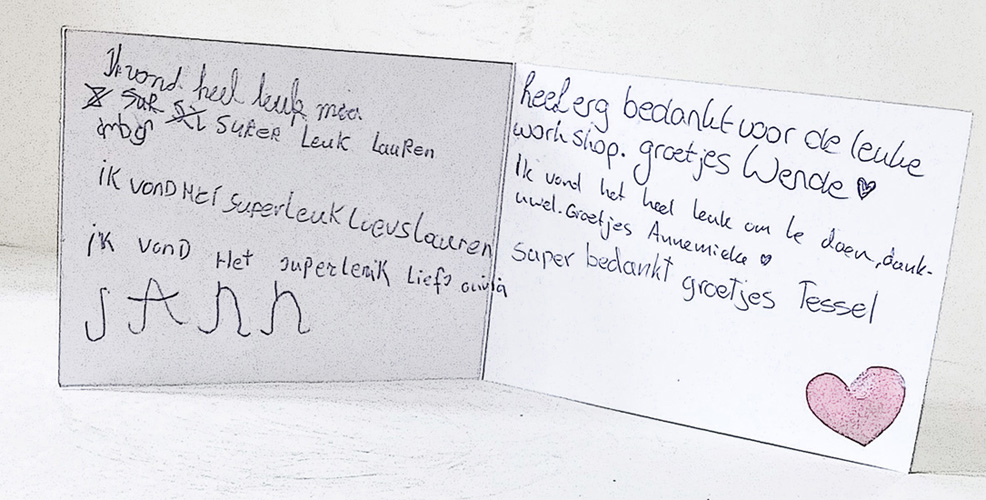 Ik vond heel leuk mia
SUPER Leuk LauRen
iK vonD HET superLeuk Lievs Lauren
iK vonD Het superleuk Liefs olivia
jAnn
heel erg bedankt voor de leuke
workshop. groetjes Wende ♥
Ik vond het heel leuk om te doen, dank-
uwel. Groetjes Annemieke ♥
super bedankt groetjes Tessel